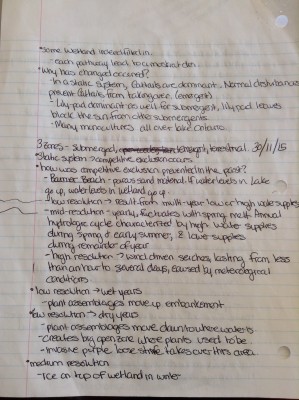 • Some wetland indeed filled in.
- each pathway lead to a
• Why has changed occured?
- In a static system, Cattails are dominant. Normal disturbances
prevent cattails from taking over. (emergent)
- Lily-pad dominant as well for submergent, lily pad leaves
block the sun from other submergents
- Many monocultures all over lake Ontario
3 zones - submerged, emergent, terrestrial. 30/11/15
• Static system → competitive exclusion occurs
• how was competitive exclusion prevented in the past?
- Barrier Beach - porous sand material. If water levels in Lake
go up, water levels in wetland go up.
- low resolution → result from multi-year low or high water supplies
- mid-resolution - yearly, fluctuates with spring melt. Annual
hydrologic cycle characterized by high water supplies
during spring & early summer, & low supplies
during remainder of year
- high resolution → wind driven seiches, lasting from less
than an hour to several days, caused by meteorological
conditions
• low resolution → wet years
- plant assemblages move up embankment
• low resolution → dry years
- plant assemblages move down to where water is
- creates big open zone where plants used to be
- invasive purple loose strife takes over this area
• medium resolution
- ice on top of wetland in winter